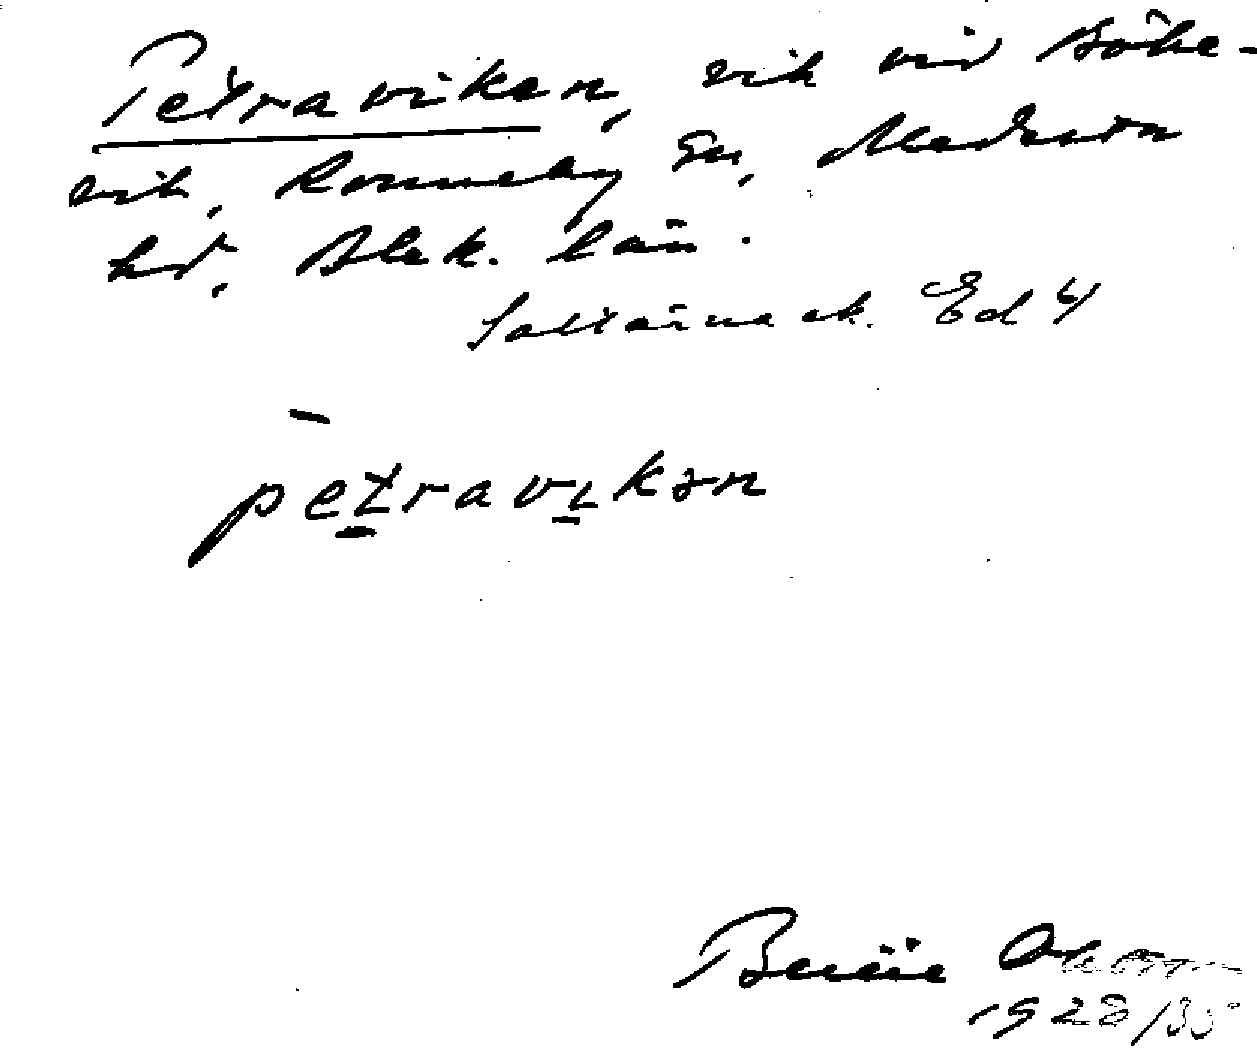 Petraviken, vik vid Böke-
vik, Ronneby sn, Medelsta
hd, Blek. län.
Saltärna ek. Ed 4
petravikən
Ohlsson
1928/35